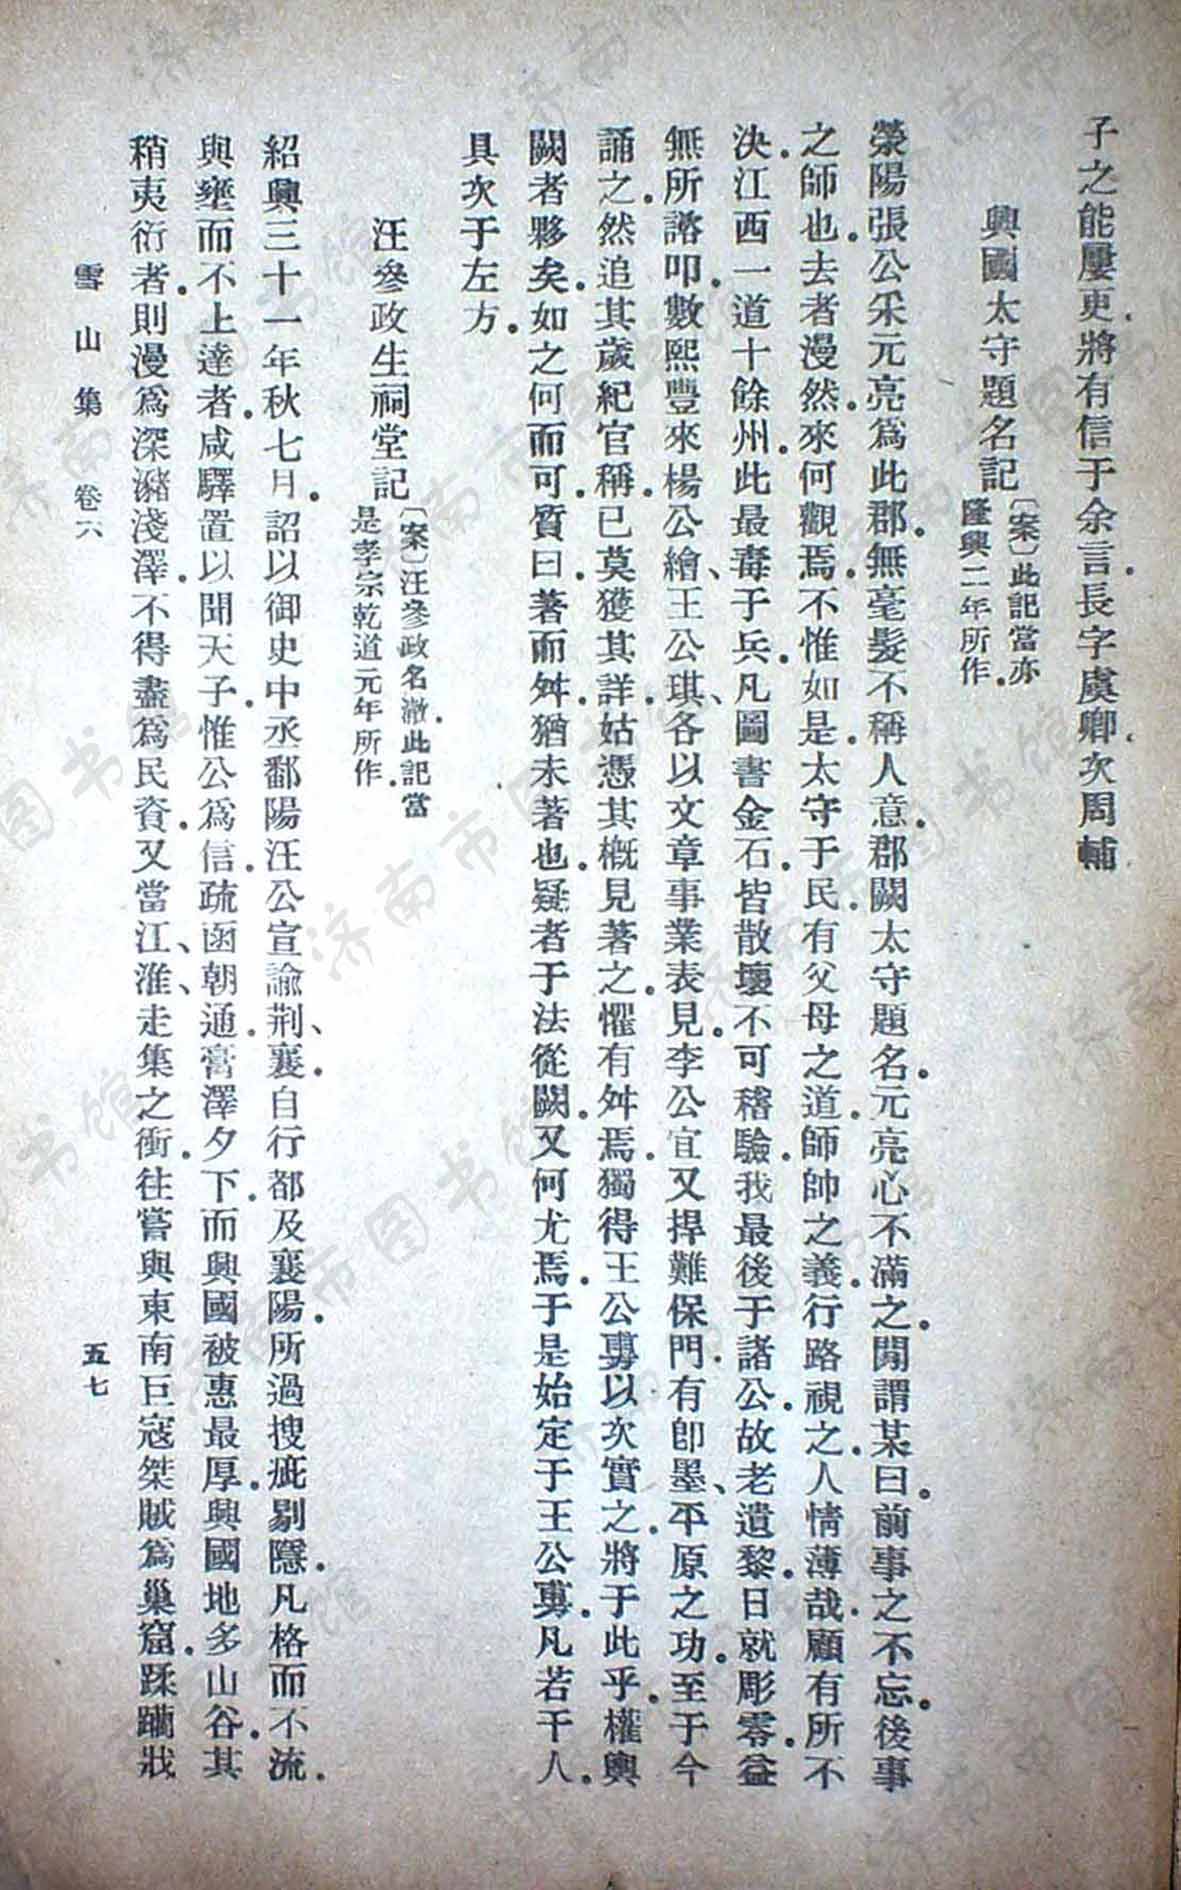 子之能屢更.將有信于余言.長字虞卿.次周輔
興國太守題名記
〔案〕此記當亦
隆興二年所作.
滎陽張公采元亮爲此郡.無毫髮不稱人意.郡闕太守題名.元亮心不滿之.閒謂某曰.前事之不忘.後事
之師也.去者漫然.來何觀焉.不惟如是.太守于民.有父母之道.師帥之義.行路視之.人情薄哉.顧有所不
決.江西一道十餘州.此最毒于兵.凡圖書金石.皆散壞不可稽驗.我最後于諸公.故老遺黎.日就彫零.益
無所諮叩.數熙豐來楊公繪、王公琪、各以文章事業表見.李公宜又捍難保門.有卽墨、平原之功.至于今
誦之.然追其歲紀官稱.已莫獲其詳.姑憑其槪見著之.懼有舛焉.獨得王公專以次實之.將于此乎.權輿
闕者夥矣.如之何而可.質曰.著而舛.猶未著也.疑者于法從闕.又何尤焉.于是始定于王公專.凡若干人.
具次于左方.
汪參政生祠堂記
〔案〕汪參政名澈.此記當
是孝宗乾道元年所作.
紹興三十一年秋七月.詔以御史中丞鄱陽汪公宣諭荆、襄.自行都及襄陽.所過搜疵剔隱.凡格而不流.
與壅而不上達者.咸驛置以聞天子.惟公爲信.疏函朝通.膏澤夕下.而興國被惠最厚.興國地多山谷.其
稍夷衍者.則漫爲深瀦淺澤.不得盡爲民資.又當江、淮走集之衝.往嘗與東南巨寇桀賊爲巢窟.蹂躪戕
雪山集 卷六
五七
济南市图书馆